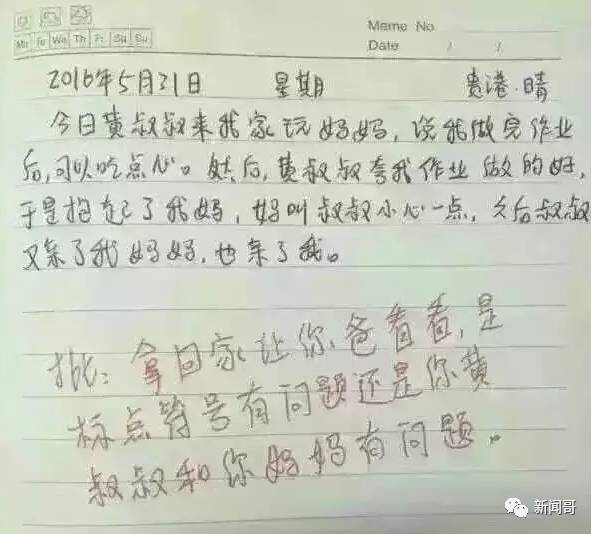 Meme No
Mo Tu We Th Fr Sa Su
Date / /
2016年5月31日 星期 贵港·晴
今日黄叔叔来我家玩妈妈，说我做完作业
后，可以吃点心。然后，黄叔叔夸我作业做的好，
于是抱起了我妈，妈叫叔叔小心一点，之后叔叔
又亲了我妈妈，也亲了我。
批：拿回家让你爸看看，是
标点符号有问题还是你黄
叔叔和你妈妈有问题。
新闻哥